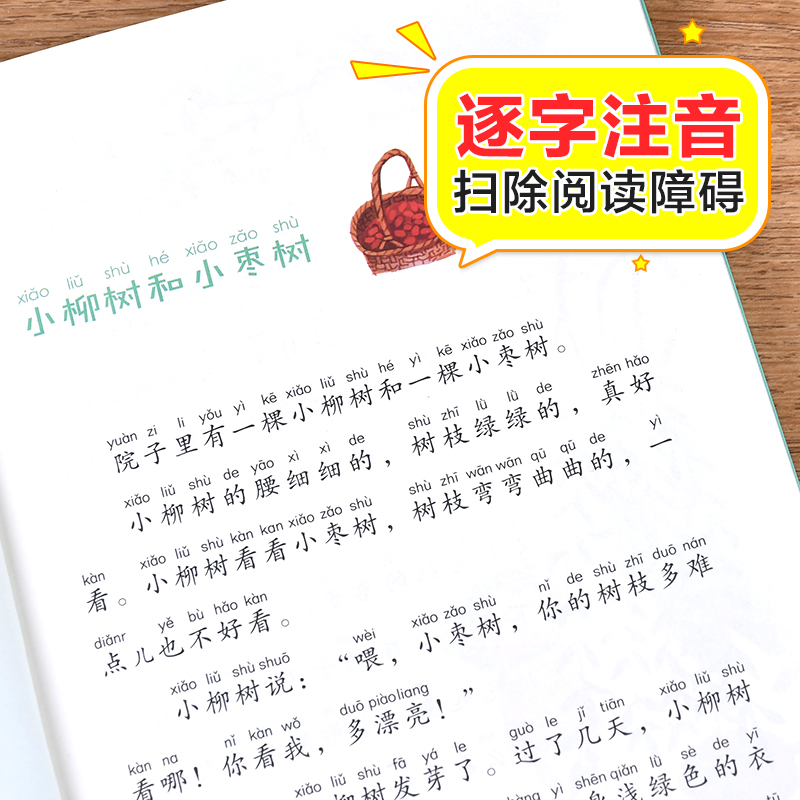 逐字注音
扫除阅读障碍
xiǎo liǔ shù hé xiǎo zǎo shù
小柳树和小枣树
yuàn zi li yǒu yì kē xiǎo liǔ shù hé yì kē xiǎo zǎo shù
院子里有一棵小柳树和一棵小枣树。
xiǎo liǔ shù de yāo xì xì de shù zhī lǜ lǜ de zhēn hǎo
小柳树的腰细细的，树枝绿绿的，真好
kàn xiǎo liǔ shù kàn kan xiǎo zǎo shù shù zhī wān wān qū qū de yì
看。小柳树看看小枣树，树枝弯弯曲曲的，一
diǎnr yě bù hǎo kàn
点儿也不好看。
xiǎo liǔ shù shuō wèi xiǎo zǎo shù nǐ de shù zhī duō nán
小柳树说：“喂，小枣树，你的树枝多难
kàn na nǐ kàn wǒ duō piào liang
看哪！你看我，多漂亮！”
guò le jǐ tiān xiǎo liǔ shù
过了几天，小柳树
xiǎo liǔ shù fā yá le
柳树发芽了。
yì shēn qiǎn lǜ sè de yī
浅绿色的衣